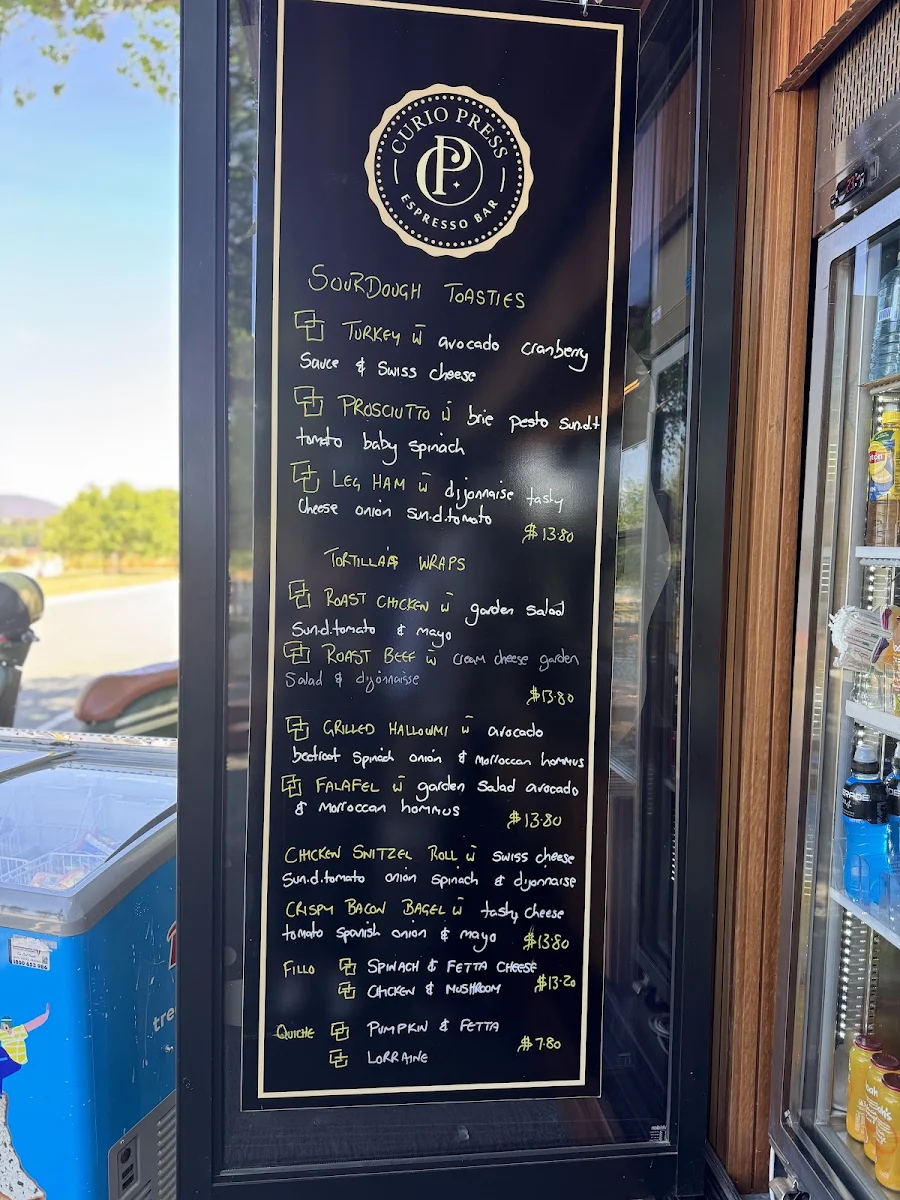 CURIO PRESS
CP
ESPRESSO BAR
SOURDOUGH TOASTIES
TURKEY w̄ avocado cranberry
Sauce & Swiss cheese
PROSCIUTTO w̄ brie pesto sun.d.t
tomato baby spinach
LEG HAM w̄ dijonnaise tasty
Cheese onion sun.d.tomato
$13.80
TORTILLA'S WRAPS
ROAST CHICKEN w̄ garden salad
Sun.d.tomato & mayo
ROAST BEEF w̄ cream cheese garden
Salad & dyonnaisse
$13.80
GRILLED HALLOUMI w̄ avocado
beetroot Spinach onion & Morroccan hommus
FALAFEL w̄ garden Salad avocado
& Morroccan hommus
$13.80
CHICKEN SNITZEL ROLL w̄ swiss cheese
Sun.d.tomato onion spinach & dyonnaise
CRISPY BACON BAGEL w̄ tasty cheese
tomato spanish onion & mayo $13.80
FILLO SPINACH & FETTA CHEESE
CHICKEN & MUSHROOM $13.20
QUICHE PUMPKIN & FETTA
$7.80
LORRAINE